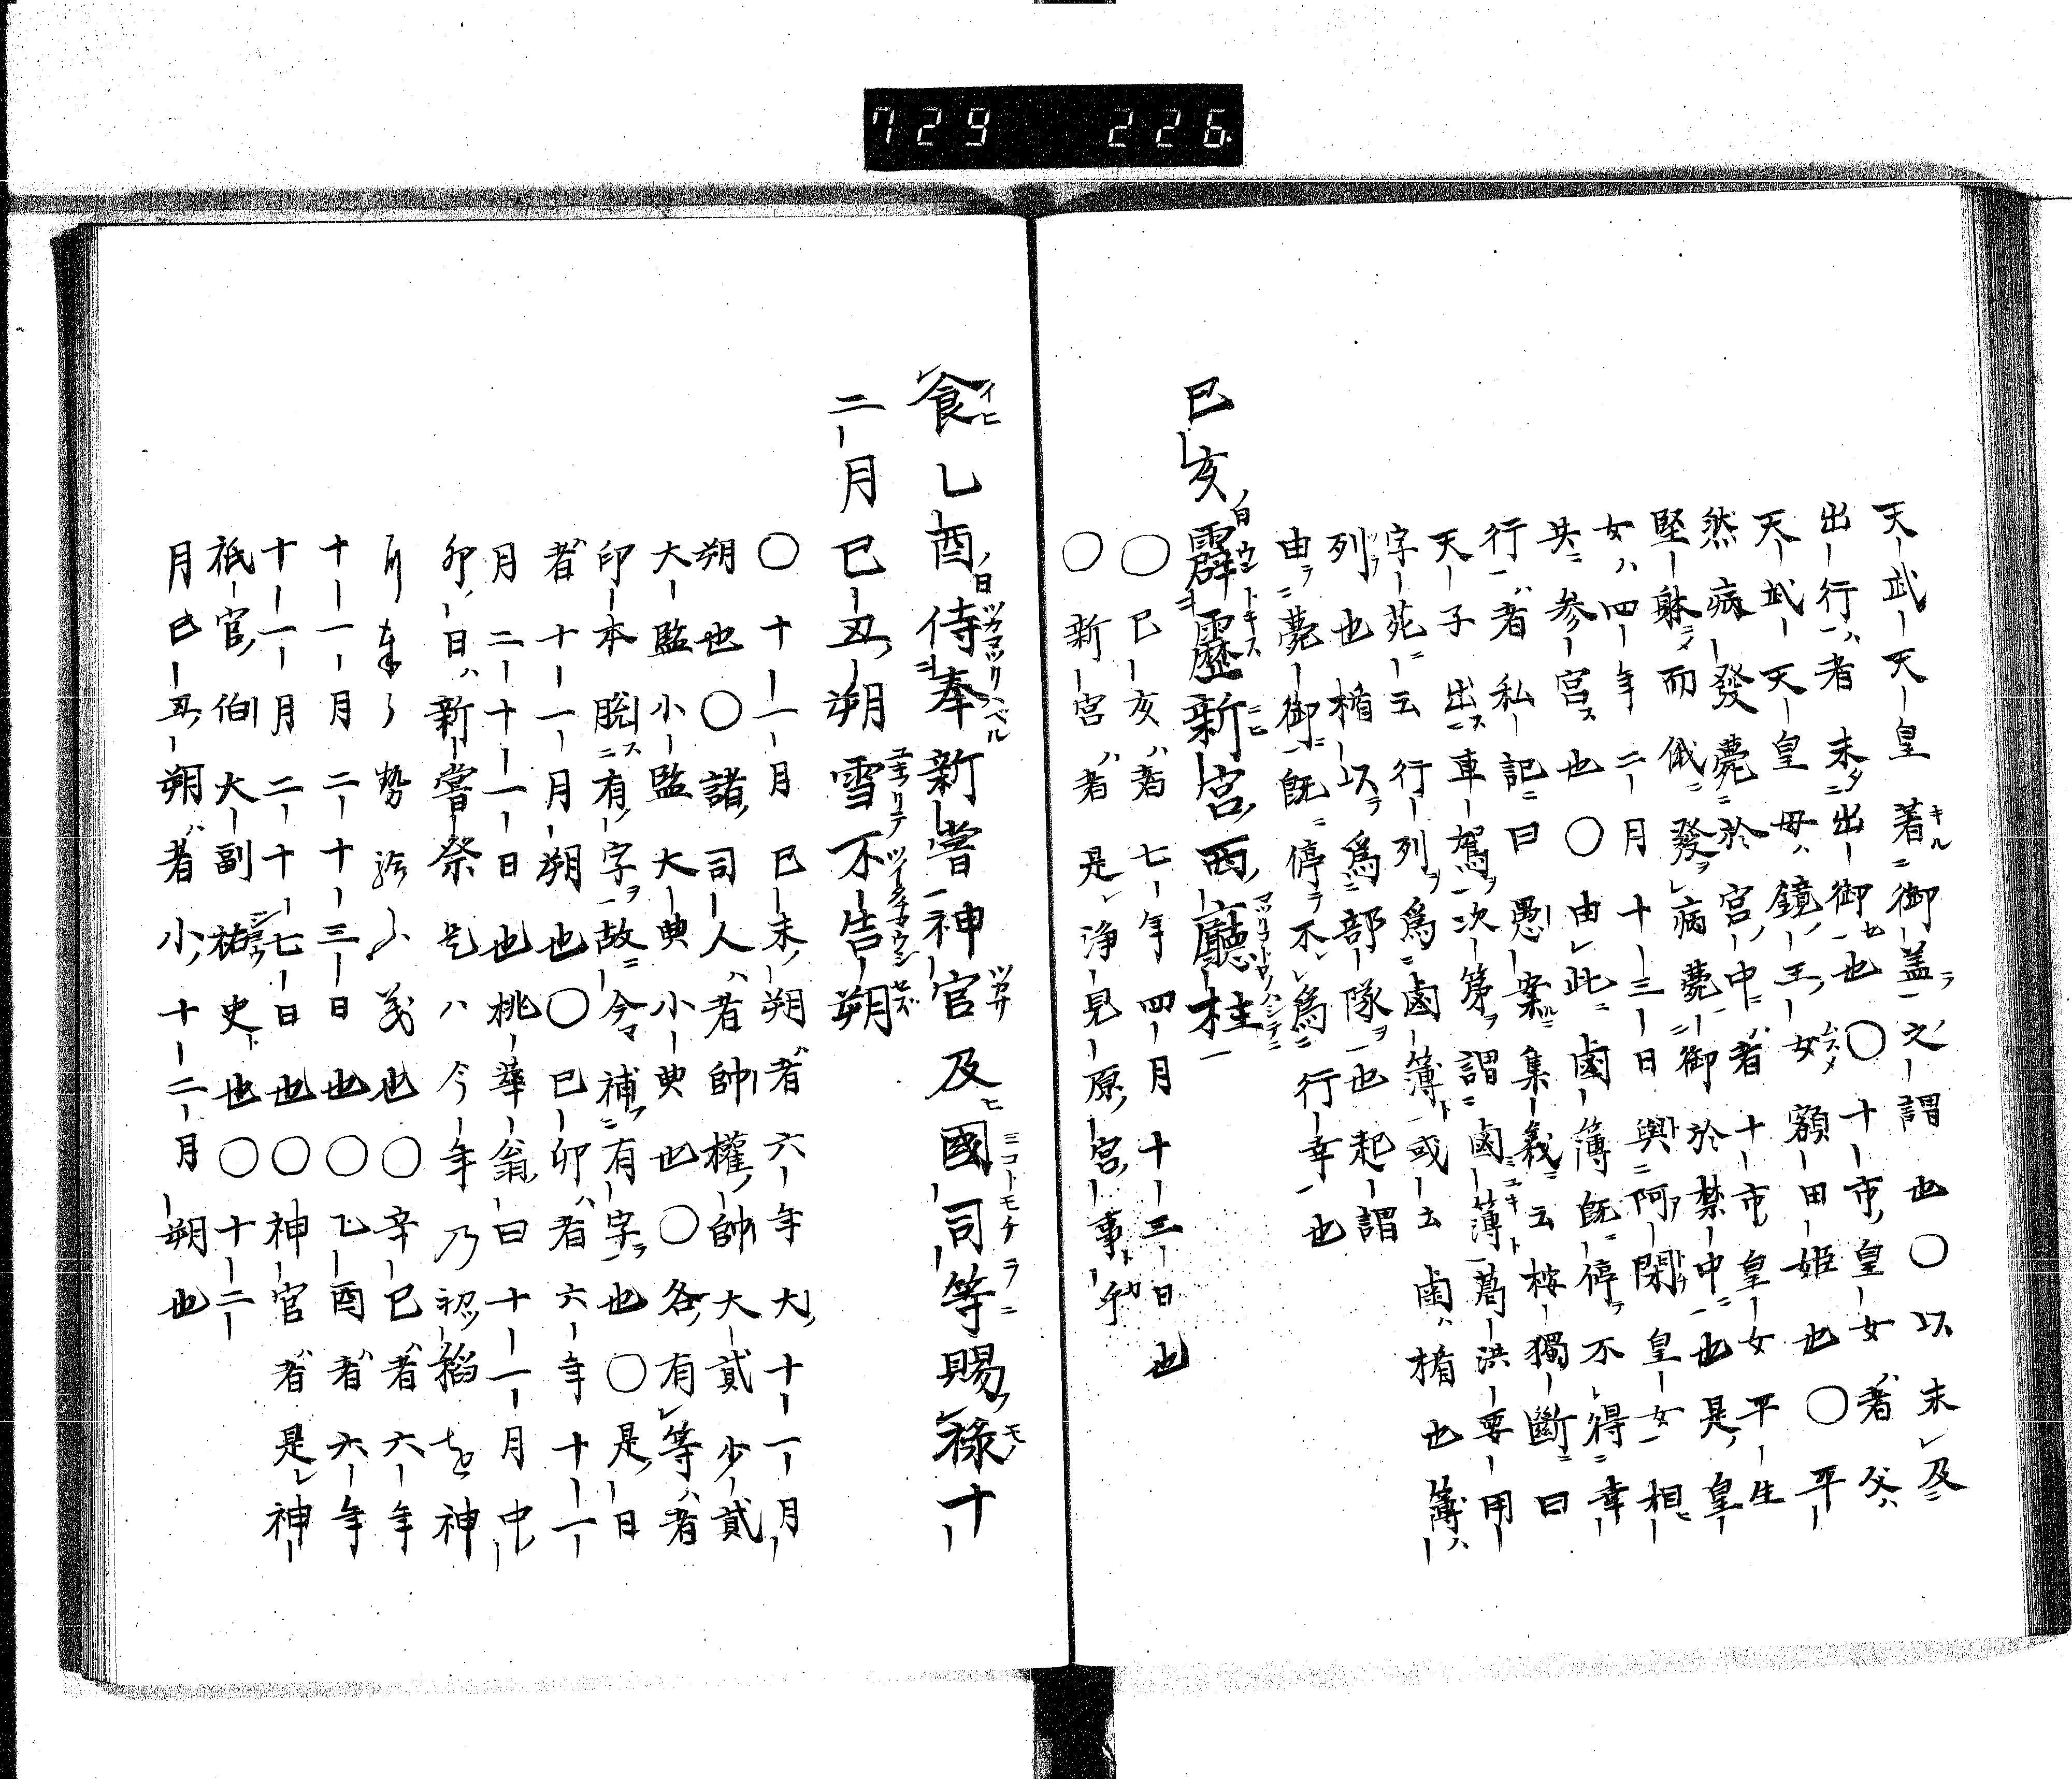 729 226
天武天皇著御盖之謂也〇以未及
出行者未出御也〇十市皇女者父
天武天皇母鏡王女額田姫也〇平
然病發薨於宮中者十市皇女平生
堅躰而俄發病薨御於禁中也是皇
女四年二月十三日與阿閇皇女相
共参宮也〇由此鹵簿既停不得幸
行者私記曰愚案集義云桉獨断曰
天子出車駕次第謂鹵簿葛洪要用
字苑云行列爲鹵簿或云鹵楯也簿
列也楯以爲部隊也起謂
由薨御既停不爲行幸也
巳亥霹靂新宮西廳柱
〇巳亥者七年四月十三日也
〇新宮者是浄見原宮事乎
食乙酉侍奉新嘗神官及國司等賜禄十
二月巳丑朔雪不告朔
〇十一月巳未朔者六年大十一月
朔也〇諸司人者帥權帥大貳少貳
大監小監大典小典也〇各有等者
印本脱有字故今補有字也〇是日
者十一月朔也〇巳卯者六年十一
月二十一日也桃華翁曰十一月中
卯日新嘗祭是ハ今年乃初稻を神
也〇辛巳者六年
十一月二十三日也〇乙酉者六年
十一月二十七日也〇神官者是神
祇官伯大副祐史也〇十二
月巳丑朔者小十二月朔也